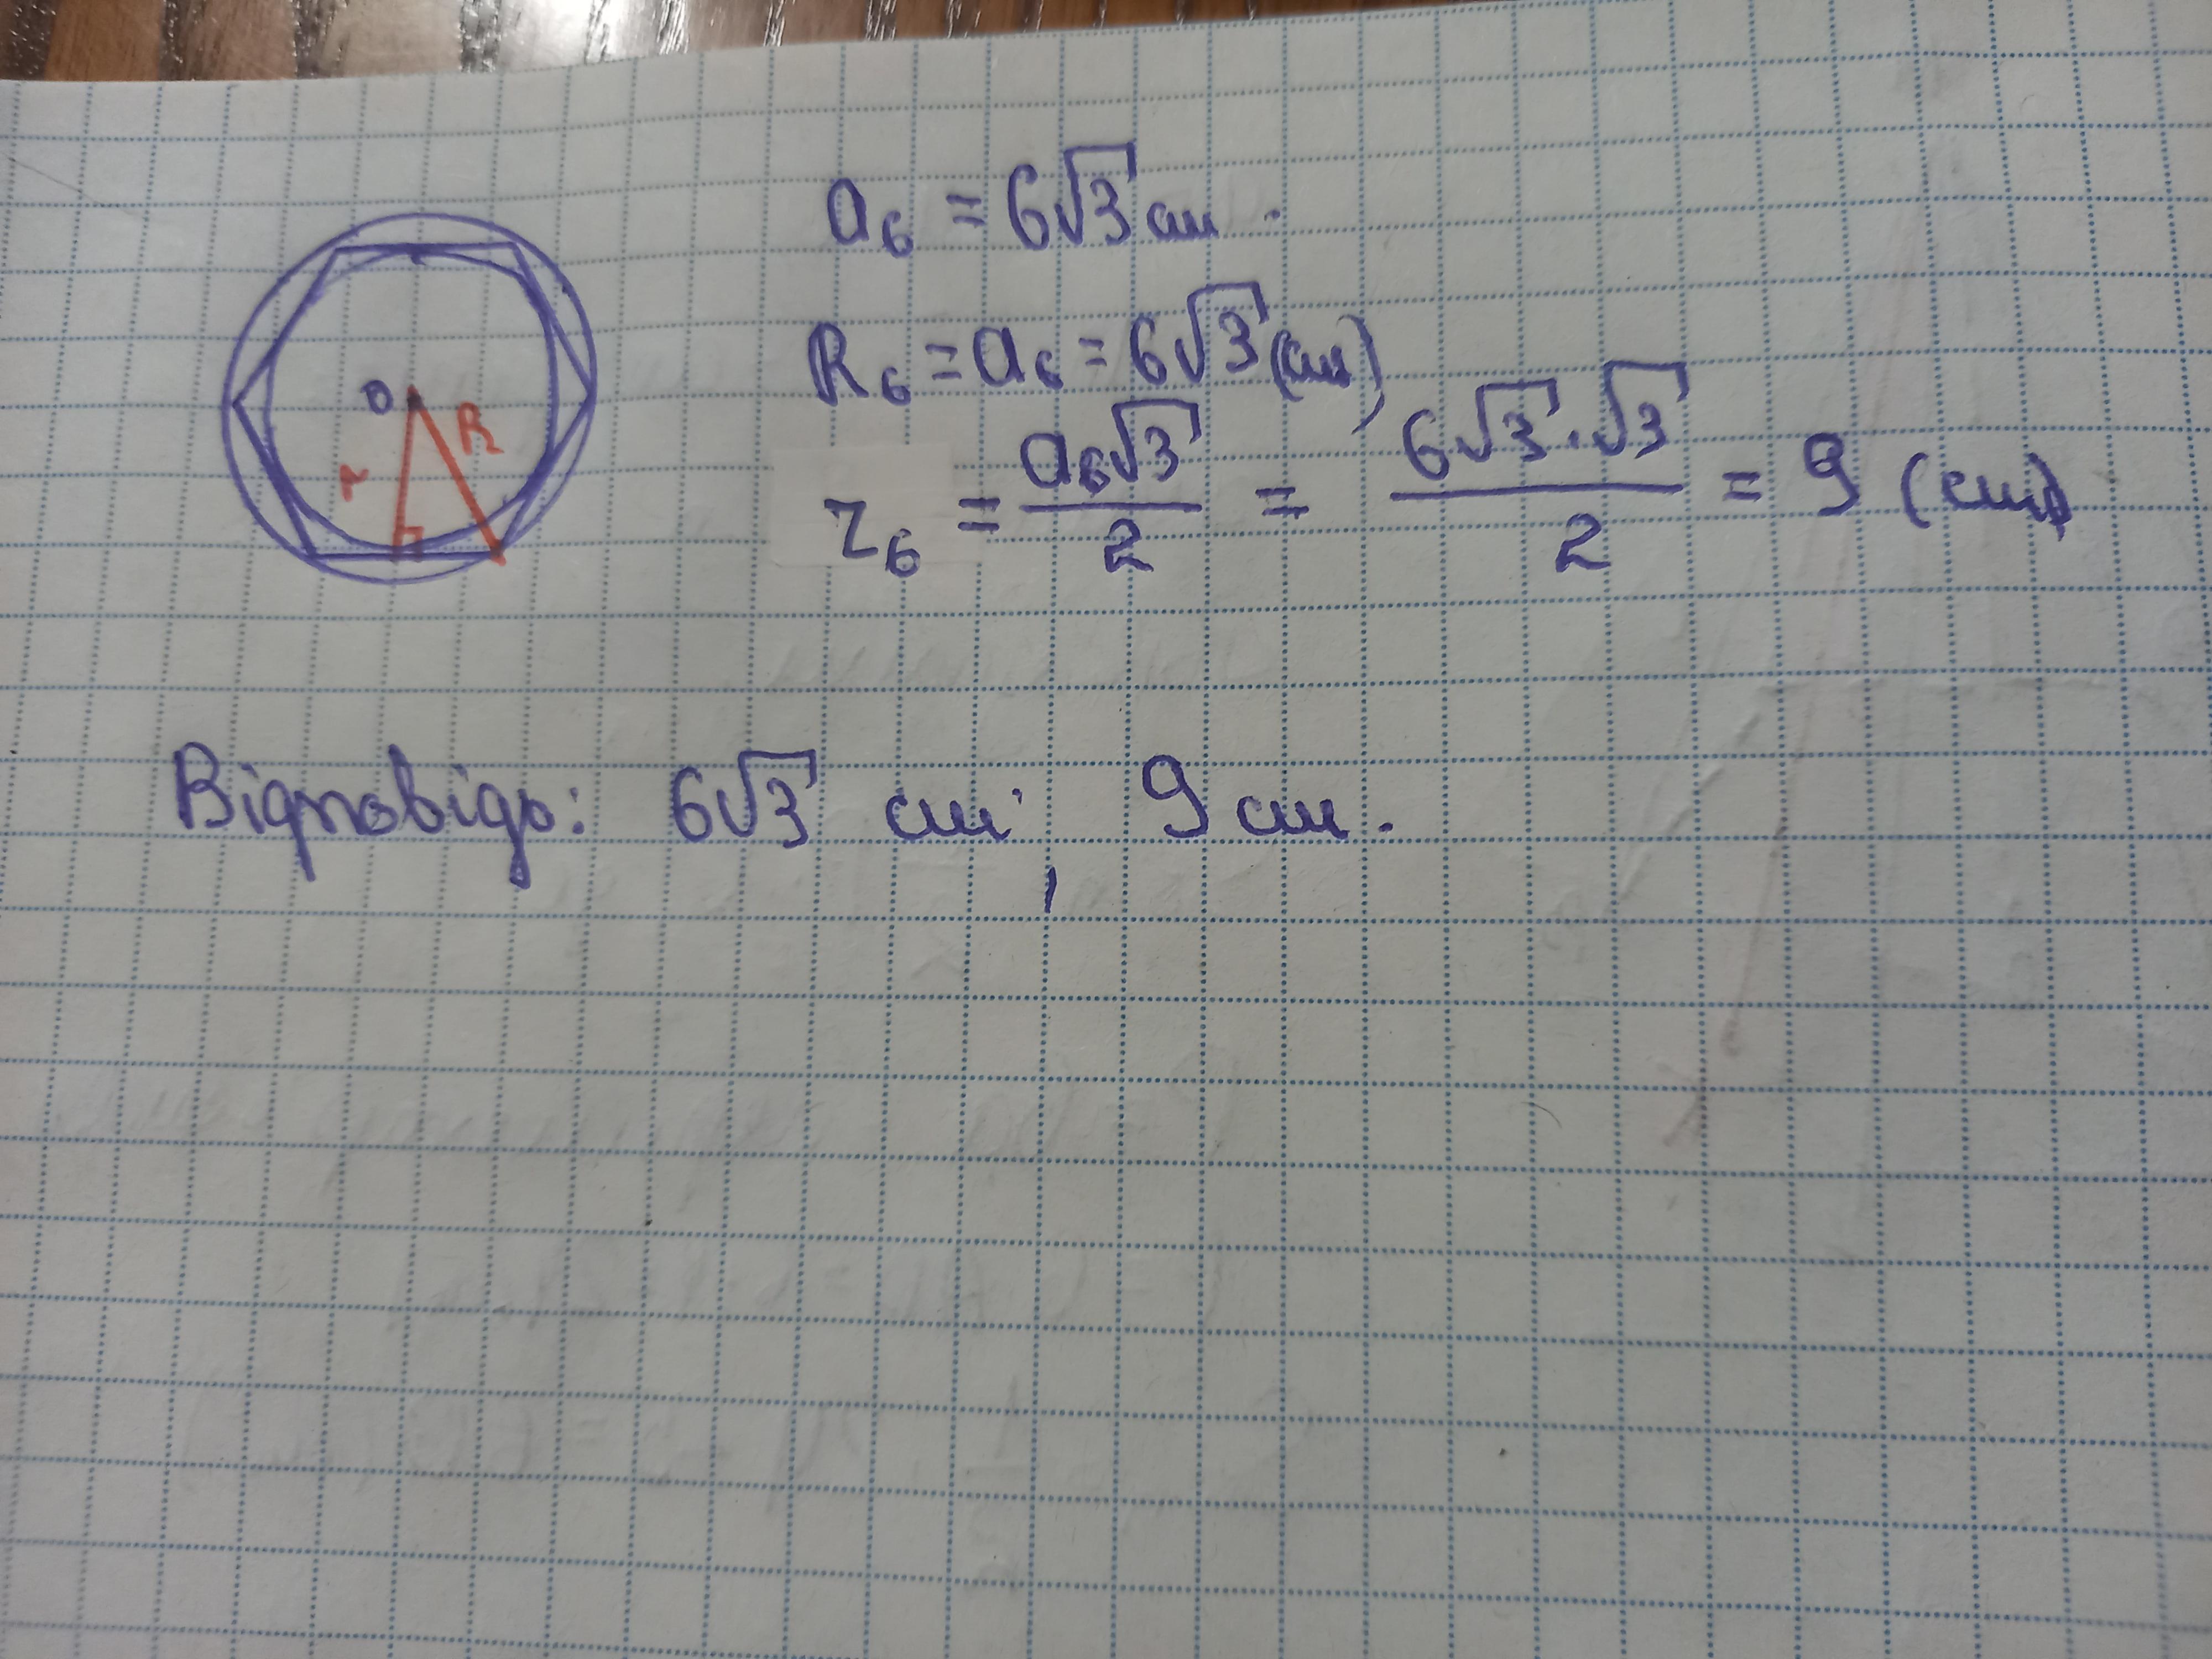 a₆ = 6√3 см.
O R r
R₆ = a₆ = 6√3 (см)
r₆ = a₆√3/2 = 6√3·√3/2 = 9 (см)
Відповідь: 6√3 см; 9 см.